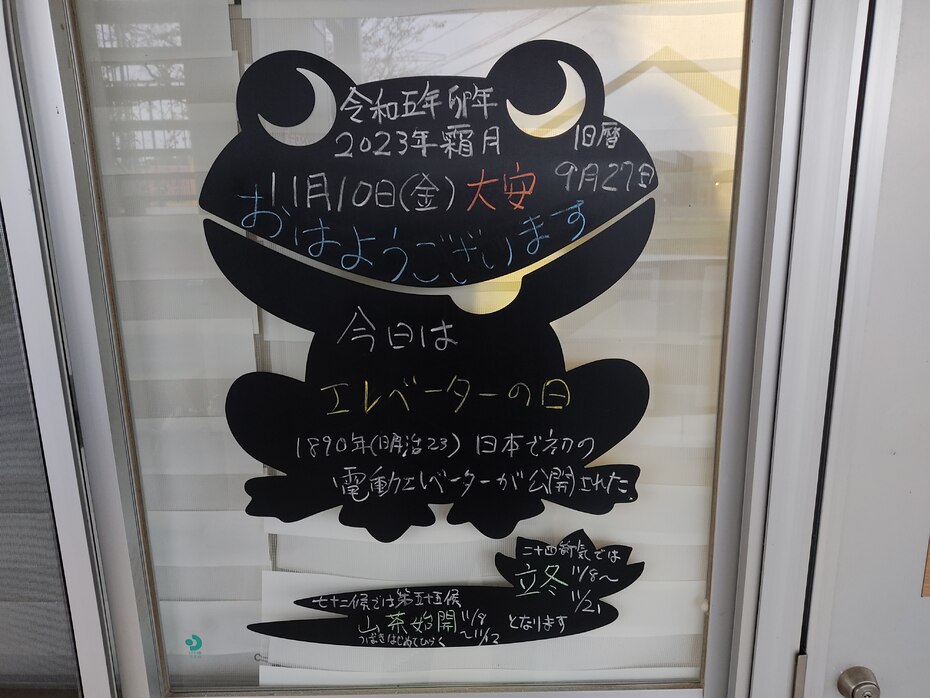 令和五年卯年
2023年霜月
旧暦
9月27日
11月10日(金) 大安
おはようございます
今日は
エレベーターの日
1890年(明治23) 日本で初の
電動エレベーターが公開された.
二十四節気では
立冬 11/8〜
11/21
となります
七十二候では第五十五候
山茶始開 11/8
〜11/12
つばきはじめてひらく